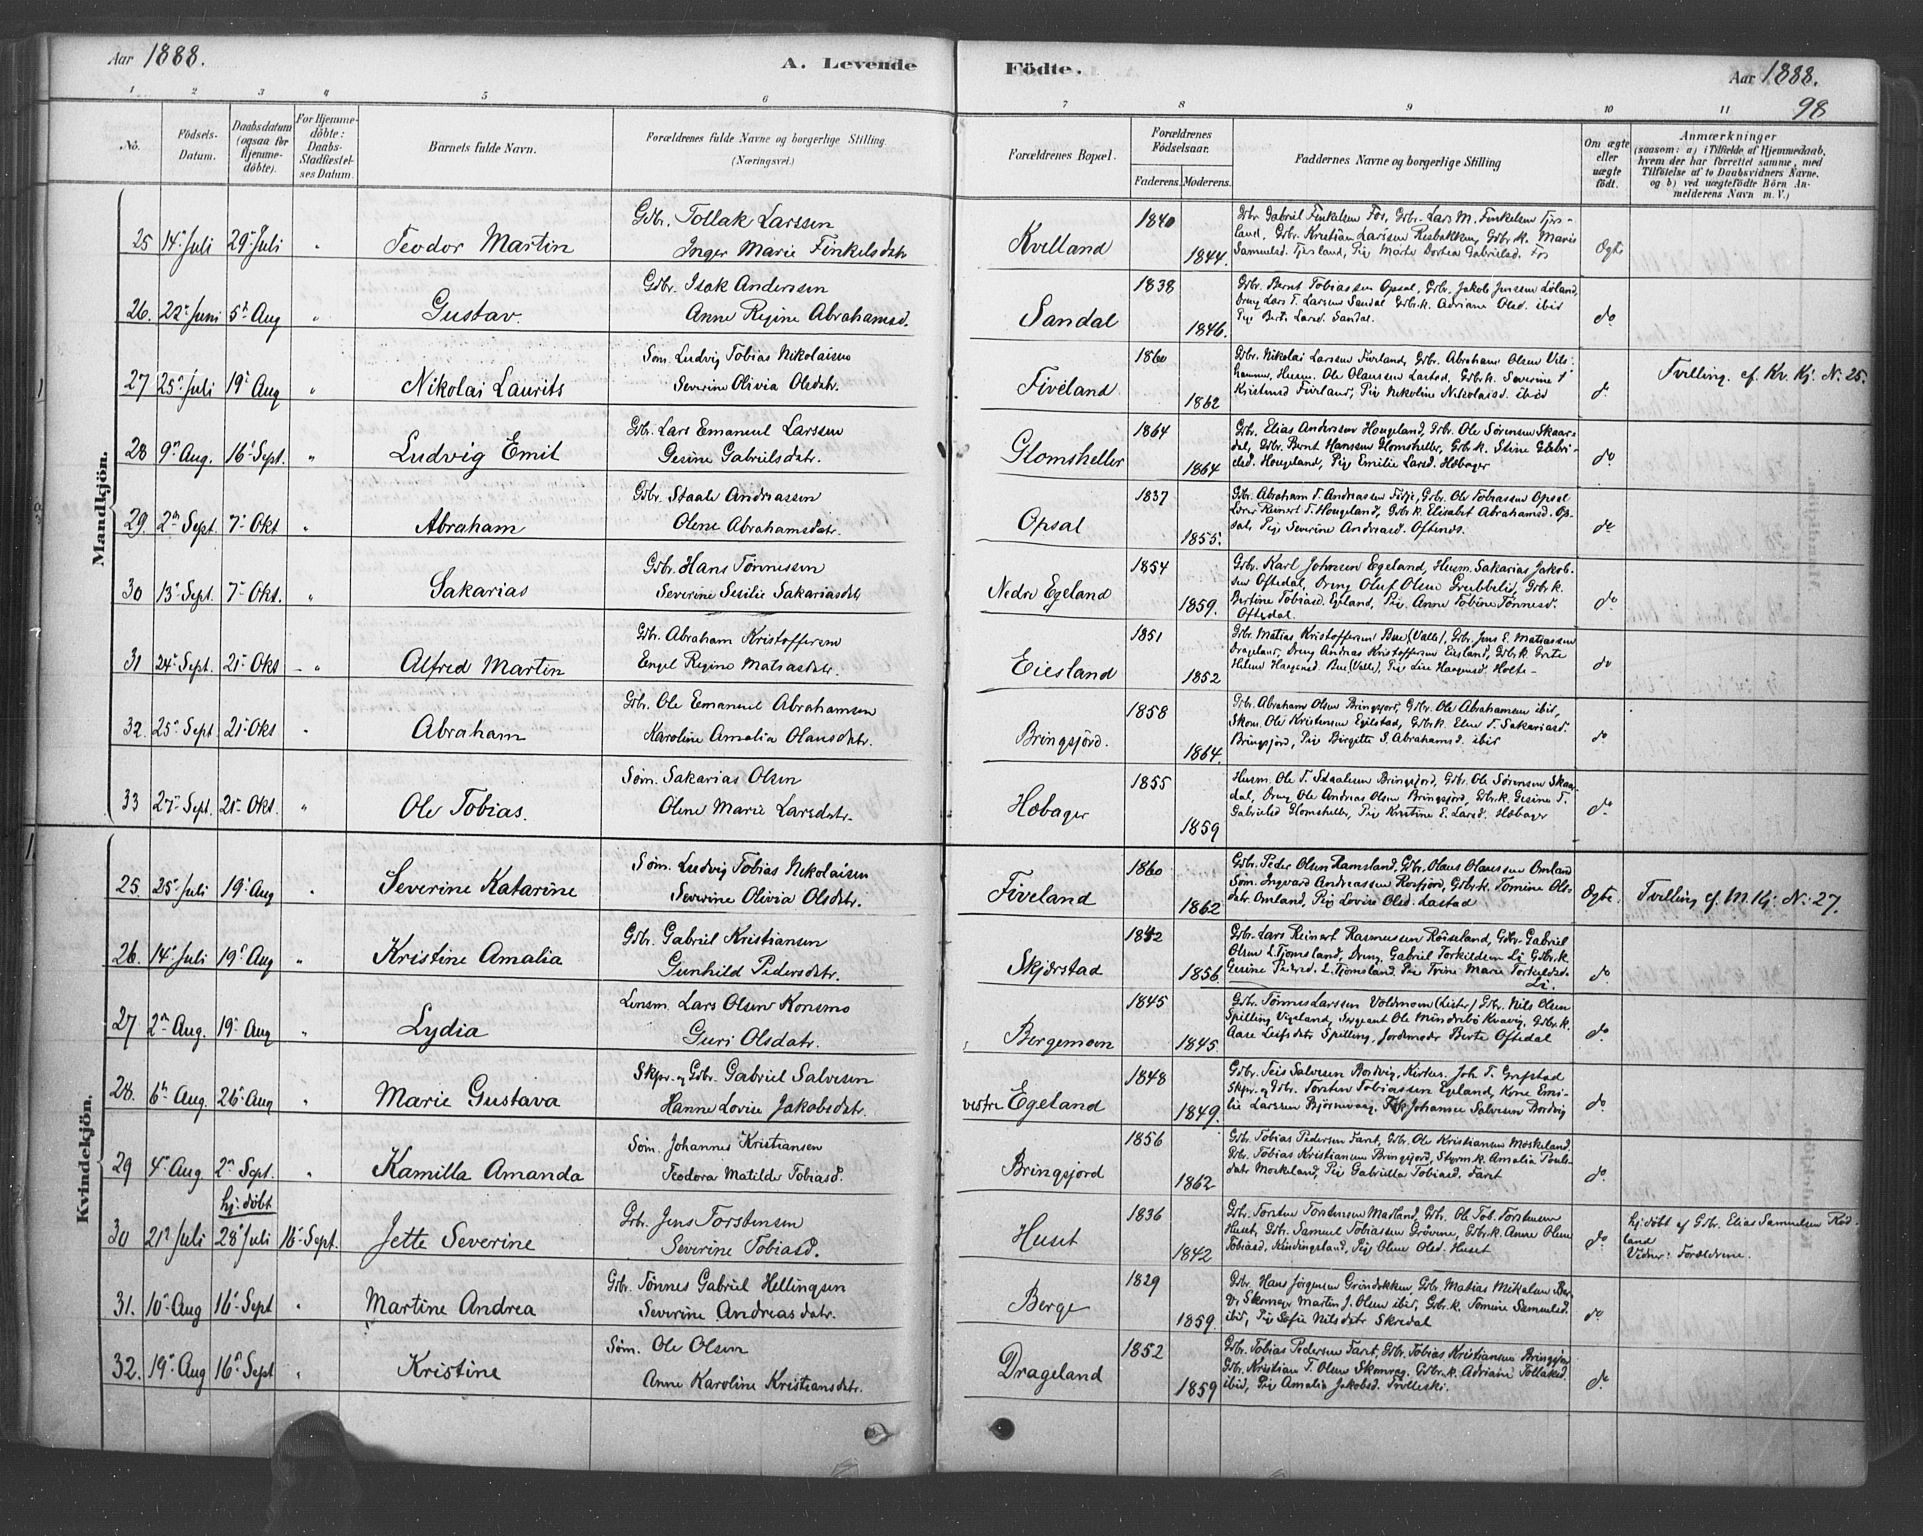 Aar 1888.
A. Levende
Födte.
Aar 1888.
98
1 2 3 4 5 6 7 8 9 10 11
No.
Födsels-Datum.
Daabsdatum (ogsaa for Hjemme-döbte).
For Hjemme-döbte: Daabs-Stadfæstel-ses Datum.
Barnets fulde Navn.
Forældrenes fulde Navne og borgerlige Stilling (Næringsvei.)
Forældrenes Bopæl.
Forældrenes Födselsaar.
Faderens. Moderens.
Faddernes Navne og borgerlige Stilling
Om ægte eller uægte födt.
Anmærkninger
(saasom: a) i Tilfælde af Hjemmedaab, hvem der har forrettet samme, med Tilföielse af to Daabsvidners Navne, og b) ved uægtefödte Börn An-melderens Navn m. V.)
Mandkjön.
25 14de Juli 29de Juli " Teodor Martin
Gdbr. Tollak Larssen
Inger Marie Finkelsdatr
Kvilland 1840 1844.
Gdbr. Gabriel Finkelsen Fos, Gdbr. Lars M. Finkelsen Tjers-
land, Gdbr. Kristian Larssen Risbakken, Gdbr.k. Marie
Samuelsd. Tjersland, Pig Marte Dortea Gabrielsd. Fos
Ægte
26. 22de Juni 5te Aug " Gustav.
Gdbr. Isak Anderssen
Anne Regine Abrahamsd.
Sandal 1838 1846.
Gdbr. Bernt Tobiassen Opsal, Gdbr. Jakob Jenssen Löland,
Dreng Lars T. Larssen Sandal Gdbr.k. Adriane Olsd. ibid
Pig Berte Larsd. Sandal.
do
27 25de Juli 19de Aug " Nikolai Laurits
Søm. Ludvig Tobias Nikolaisen
Severine Olivia Olsdatr.
Fiveland 1860 1862
Gdbr. Nikolai Larssen Fiveland, Gdbr. Abraham Olsen Vils-
Husm. Ole Olaussen Lastad, Gdbr.k. Severine
Fiveland, Pig Nikoline Nikolaisd. ibid
do
Tvilling. cf. Kv. Kj. N: 25.
28 9de Aug. 16de Sept. " Ludvig Emil
Gdbr. Lars Emanuel Larssen
Gesine Gabrielsdatr.
Glomsheller 1864 1864
Gdbr. Elias Anderssen Hougeland, Gdbr. Ole Sørensen Skaar-
dal, Gdbr. Bernt Hanssen Glomsheller, Gdbr.k. Stine Gabri-
elsd. Hougeland, Pig Emilie Larsd. Høbager
do
29. 2den Sept. 7de Okt " Abraham
Gdbr. Staale Andreassen
Olene Abrahamsdatr.
Opsal 1837 1855.
Gdbr. Abraham T. Andreassen Fidje, Gdbr. Ole Tobiassen Opsal
Lærer Reinert T. Hougeland, Gdbr.k. Elisabet Abrahamsd. Op-
sal, Pig Severine Andreasd. Oftenes.
do
30 13de Sept. 7de Okt. " Sakarias
Gdbr. Hans Tönnessen
Severine Sesilie Sakariasdatr
Nedre Egeland 1854 1859.
Gdbr. Karl Johnsen Egeland, Husm. Sakarias Jakob-
sen Oftedal, Dreng Oluf Olsen Grubbelid, Gdbr.k.
Bertine Tobiasd. Egeland, Pig Anne Tobine Tönnesd.
Oftedal.
do
31 24de Sept. 21de Okt " Alfred Martin
Gdbr. Abraham Kristoffersen
Engel Regine Matiasdatr.
Eiesland 1851 1852
Gdbr. Matias Kristoffersen Bue (Valle), Gdbr. Jens E. Matiassen
Drageland, Dreng Andreas Kristoffersen Eiesland, Gdbr.k. Grete
Helene Haagensd. Bue (Valle), Pig Lise Haagensd. Holte-
do
32. 25de Sept 21de Okt " Abraham
Gdbr. Ole Emanuel Abrahamsen
Karoline Amalia Olausdatr.
Bringsjörd. 1858 1864.
Gdbr. Abraham Olsen Bringsjord, Gdbr. Ole Abrahamsen ibid,
Skom. Ole Kristensen Egilstad, Gdbr.k. Elen T. Sakariasd.
Bringsjörd, Pig Birgitte S. Abrahamsd. ibid
do
33 27de Sept. 21de Okt. " Ole Tobias.
Søm. Sakarias Olsen
Olene Marie Larsdatr.
Høbager 1855 1859
Husm. Ole T. Staalesen Bringsjord, Gdbr. Ole Sörensen Skaar-
dal, Dreng Ole Andreas Olsen Bringsjord, Gdbr.k. Gesine T.
Gabrielsd Glomsheller, Pig Kristine E. Larsd. Høbager
do
Kvindekjön.
25. 25de Juli 19de Aug " Severine Katarine
Søm. Ludvig Tobias Nikolaisen
Severine Olivia Olsdatr.
Fiveland 1860 1862
Gdbr. Peder Olsen Ramsland, Gdbr. Olaus Olaussen Omland
Søm. Ingvard Andreassen Rosfjord, Gdbr.k. Tomine Ols-
datr. Omland, Pig Lovise Olsd. Lastad
Ægte.
Tvilling cf. M. Kj. N: 27.
26. 14de Juli 19de Aug " Kristine Amalia
Gdbr. Gabriel Kristiansen
Gunhild Pedersdatr.
Skjerstad 1842 1856
Gdbr. Lars Reinert Rasmussen Röiseland, Gdbr. Gabriel
Olsen L. Tjomsland, Dreng Gabriel Torkildsen Li Gdbr.k.
Gesine Pedersd. L. Tjomsland. Pig Trine Marie Torkildsd.
Li.
do
27 2den Aug. 19de Aug " Lydia
Lensm. Lars Olsen Konsmo
Guri Olsdatr.
Bergemoen 1845 1845
Gdbr. Tönnes Larssen Voldmoen (Lister) Gdbr. Nils Olsen
Spilling Vigeland, Sergeant Ole Mindrebö Kvavig, Gdbr.k.
Aase Leifsdatr Spilling, Jordemodr Berte Oftedal
do
28. 6te Aug. 26de Aug " Marie Gustava
Skpr. og Gdbr. Gabriel Salvesen
Hanne Lovise Jakobsdatr.
vestre Egeland 1848 1849.
Gdbr. Teis Salvesen Bordvig, Kirkes. Joh. T. Grefstad
Skpr. og Gdbr. Torsten Tobiassen Egeland, Kone Emi-
lie Larssen Björnevaag, Johanne Salvesen Bordvig
do
29 4de Aug 2den Sept. " Kamilla Amanda
Søm. Johannes Kristiansen
Teodora Matilde Tobiasd.
Bringsjord 1856 1862
Gdbr. Tobias Pedersen Faret, Gdbr. Ole Kristiansen Moskeland
Gdbr. Tobias Kristiansen Bringsjord, Styrm.k. Amalia Pouls-
datr Moskeland, Pig Gabrielle Tobiasd. Faret
do
30 21de Juli hj. döbt 28de Juli 16de Sept. Jette Severine
Gdbr. Jens Torstensen
Severine Tobiasd.
Huset 1836 1842
Gdbr. Torsten Torstensen Marland, Gdbr. Ole Tob. Torstensen
Huset, Gdbr. Samuel Tobiassen Grövene, Gdbr.k. Anne Olene
Tobiasd, Kindingsland, Pig Olene Olsd. Huset
do
hj. döbt af Gdbr. Elias Samuelsen Röd-
land
Vidner: Forældrene.
31. 10de Aug 16de Sept " Martine Andrea
Gdbr. Tönnes Gabriel Hellingsen
Severine Andreasdatr.
Berge 1829 1859.
Gdbr. Hans Jörgensen Gröndokken Gdbr. Matias Mikalsen Ber-
ge, Skomager Martin J. Olsen ibid, Gdbr.k. Tomine Samuelsd.
ibid, Pig Sofie Nilsdatr Skredal
do
32. 19de Aug 16de Sept " Kristine
Søm. Ole Olsen
Anne Karoline Kristiansdatr.
Drageland 1852 1859
Gdbr. Tobias Pedersen Faret, Gdbr. Tobias Kristiansen Bringsjord
Gdbr. Kristian T. Olsen Skomrag, Gdbr.k. Adriane Tollaksd.
ibid, Pig Amalia Jakobsd.
do